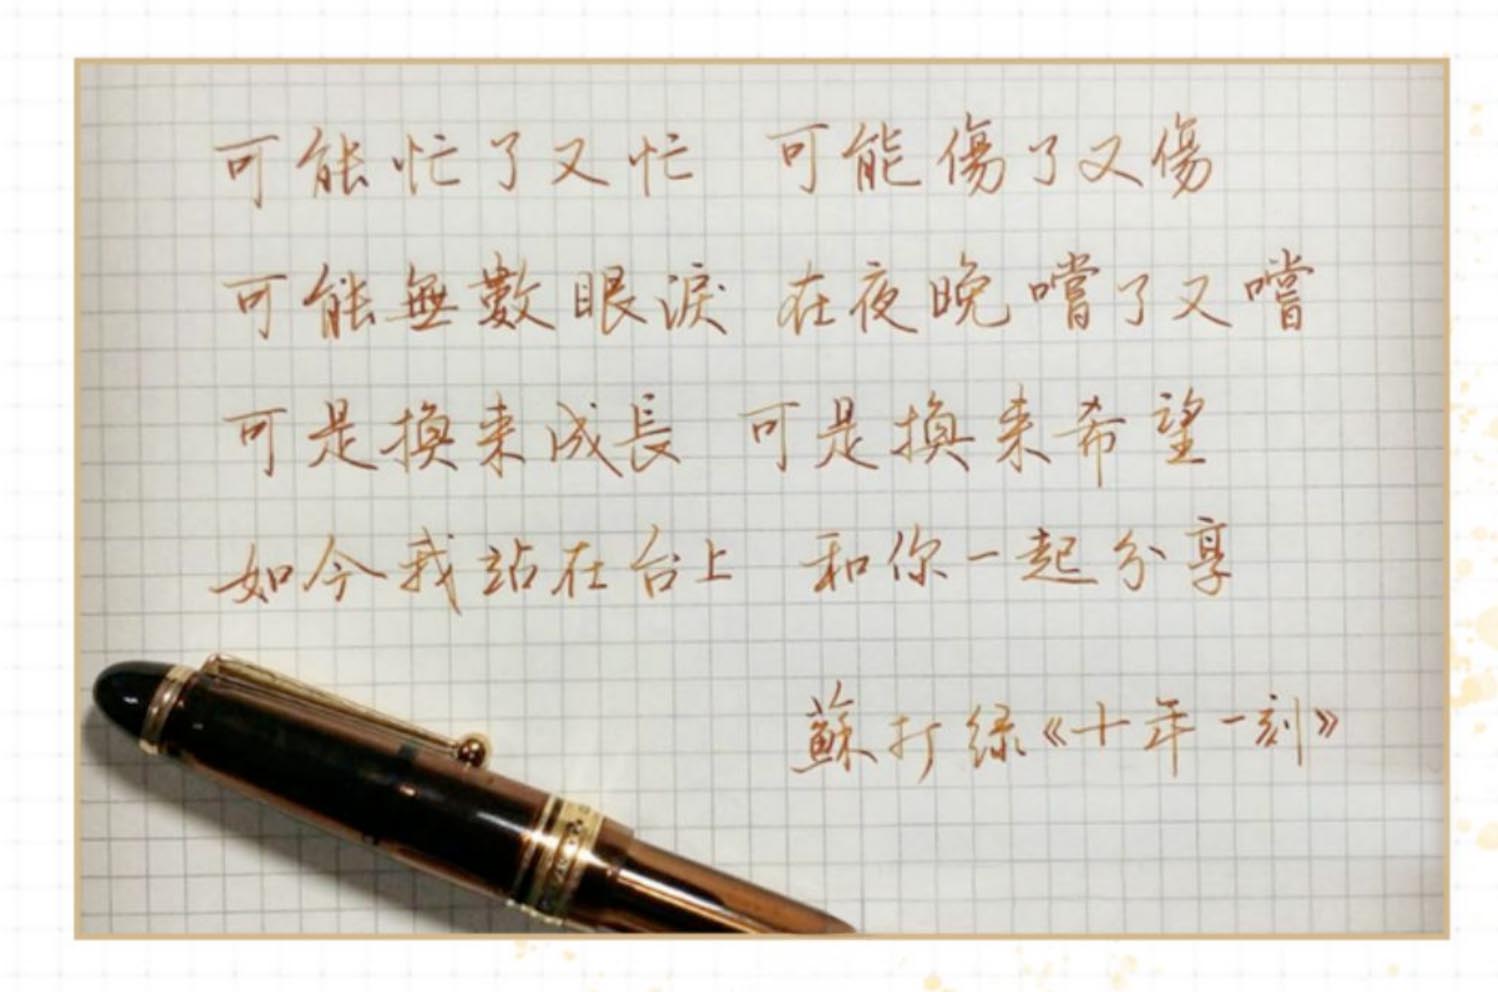 可能忙了又忙 可能傷了又傷
可能無數眼淚 在夜晚嚐了又嚐
可是換來成長 可是換来希望
如今我站在台上 和你一起分享
蘇打綠《十年一刻》